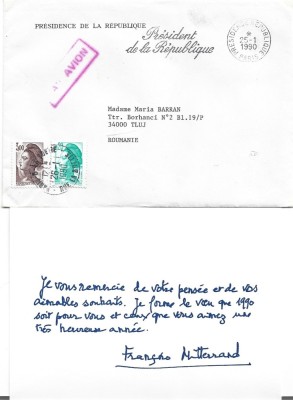 PRÉSIDENCE DE LA RÉPUBLIQUE
Président
de la République
25-1
1990
PARIS
PAR AVION
Madame Maria BARRAN
Ttr. Borhanci N°2 Bl.19/P
34000 TLUJ
ROUMANIE
3,00
Je vous remercie de votre pensée et de vos
aimables souhaits. Je forme le vœu que 1990
soit pour vous et ceux que vous aimez une
très heureuse année.
François Mitterrand